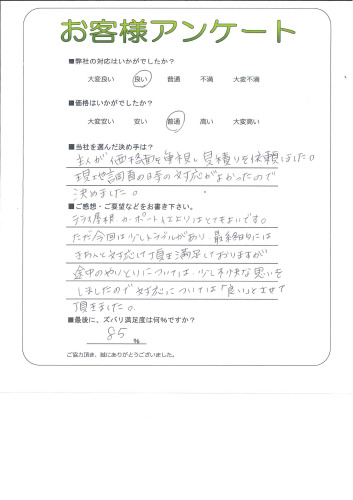 お客様アンケート
■弊社の対応はいかがでしたか?
大変良い 良い 普通 不満 大変不満
■価格はいかがでしたか?
大変安い 安い 普通 高い 大変高い
■当社を選んだ決め手は?
主人が価格面を重視し見積りを依頼しました。
現地調査の日等の対応がよかったので
決めました。
■ご感想・ご要望などをお書き下さい。
テラス屋根、カーポート仕上りはとてもよいです。
ただ今回は少しトラブルがあり、最終的には
きちんと対応して頂き満足しておりますが
途中のやりとりについては、少し不快な思いを
しましたので対応については「良い」とさせて
頂きました。
■最後に、ズバリ満足度は何%ですか?
85 %
ご協力頂き、誠にありがとうございました。